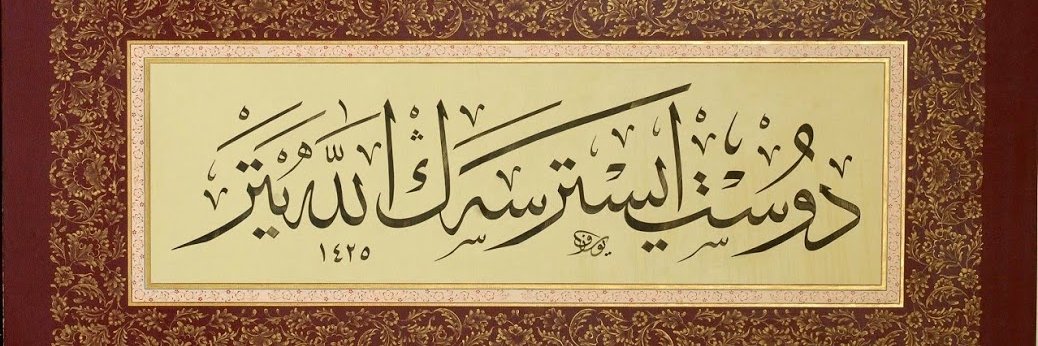 دوست ایسترسەڭ الله یتر
١٤٢٥